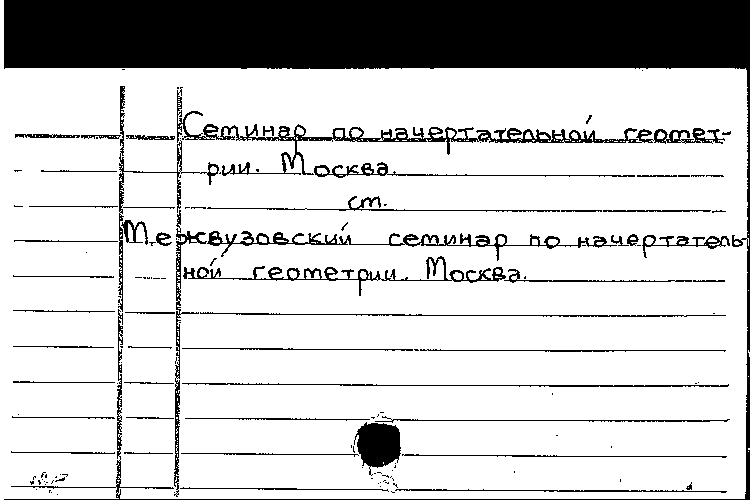 Семинар по начертательной геомет-
рии. Москва.
см.
Межвузовский семинар по начертатель
ной геометрии. Москва.